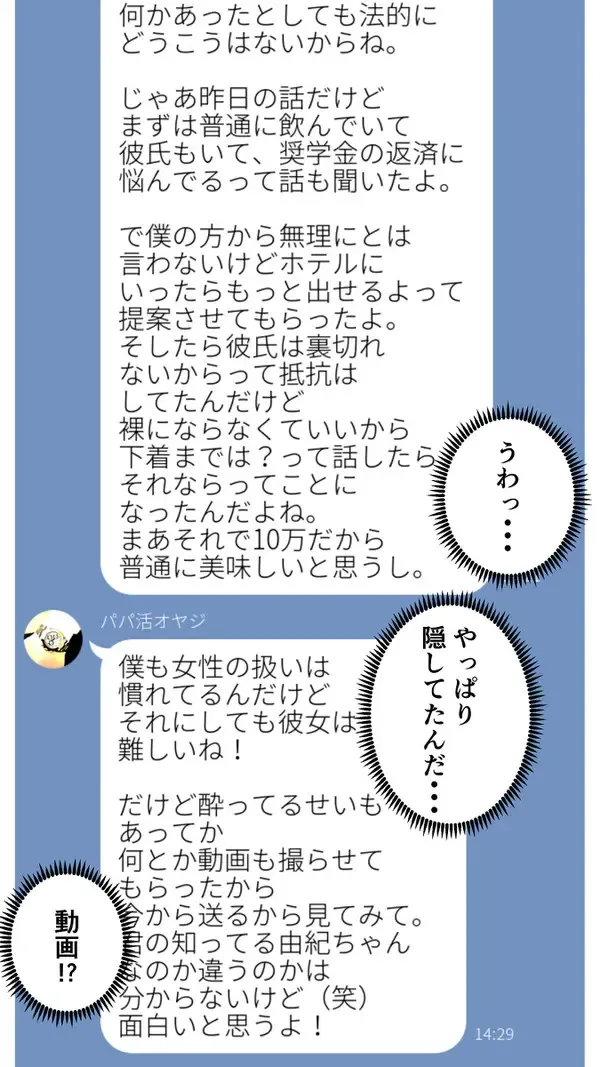 何かあったとしても法的に
どうこうはないからね。
じゃあ昨日の話だけど
まずは普通に飲んでいて
彼氏もいて、奨学金の返済に
悩んでるって話も聞いたよ。
で僕の方から無理にとは
言わないけどホテルに
いったらもっと出せるよって
提案させてもらったよ。
そしたら彼氏は裏切れ
ないからって抵抗は
してたんだけど
裸にならなくていいから
下着までは？って話したら
それならってことに
なったんだよね。
まあそれで10万だから
普通に美味しいと思うし。
うわっ…
パパ活オヤジ
僕も女性の扱いは
慣れてるんだけど
それにしても彼女は
難しいね！
だけど酔ってるせいも
あってか
何とか動画も撮らせて
もらったから
今から送るから見てみて。
君の知ってる由紀ちゃん
なのか違うのかは
分からないけど（笑）
面白いと思うよ！
やっぱり
隠してたんだ…
動画!?
14:29